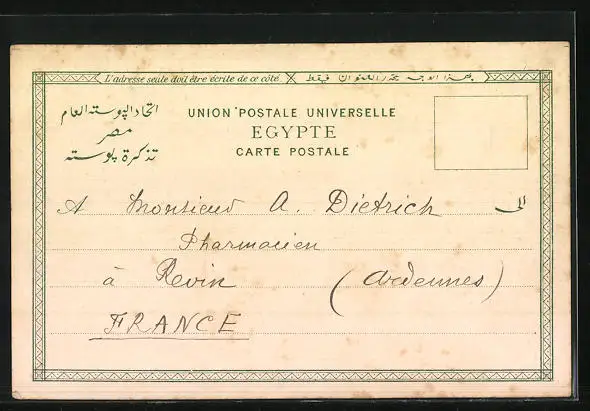 L'adresse seule doit être écrite de ce côté بهذا الوجه يحرر العنوان فقط
اتحاد البوسته العام
مصر
تذكرة بوسته
UNION POSTALE UNIVERSELLE
EGYPTE
CARTE POSTALE
A Monsieur A. Dietrich الى
Pharmacien
à Revin (Ardennes)
FRANCE